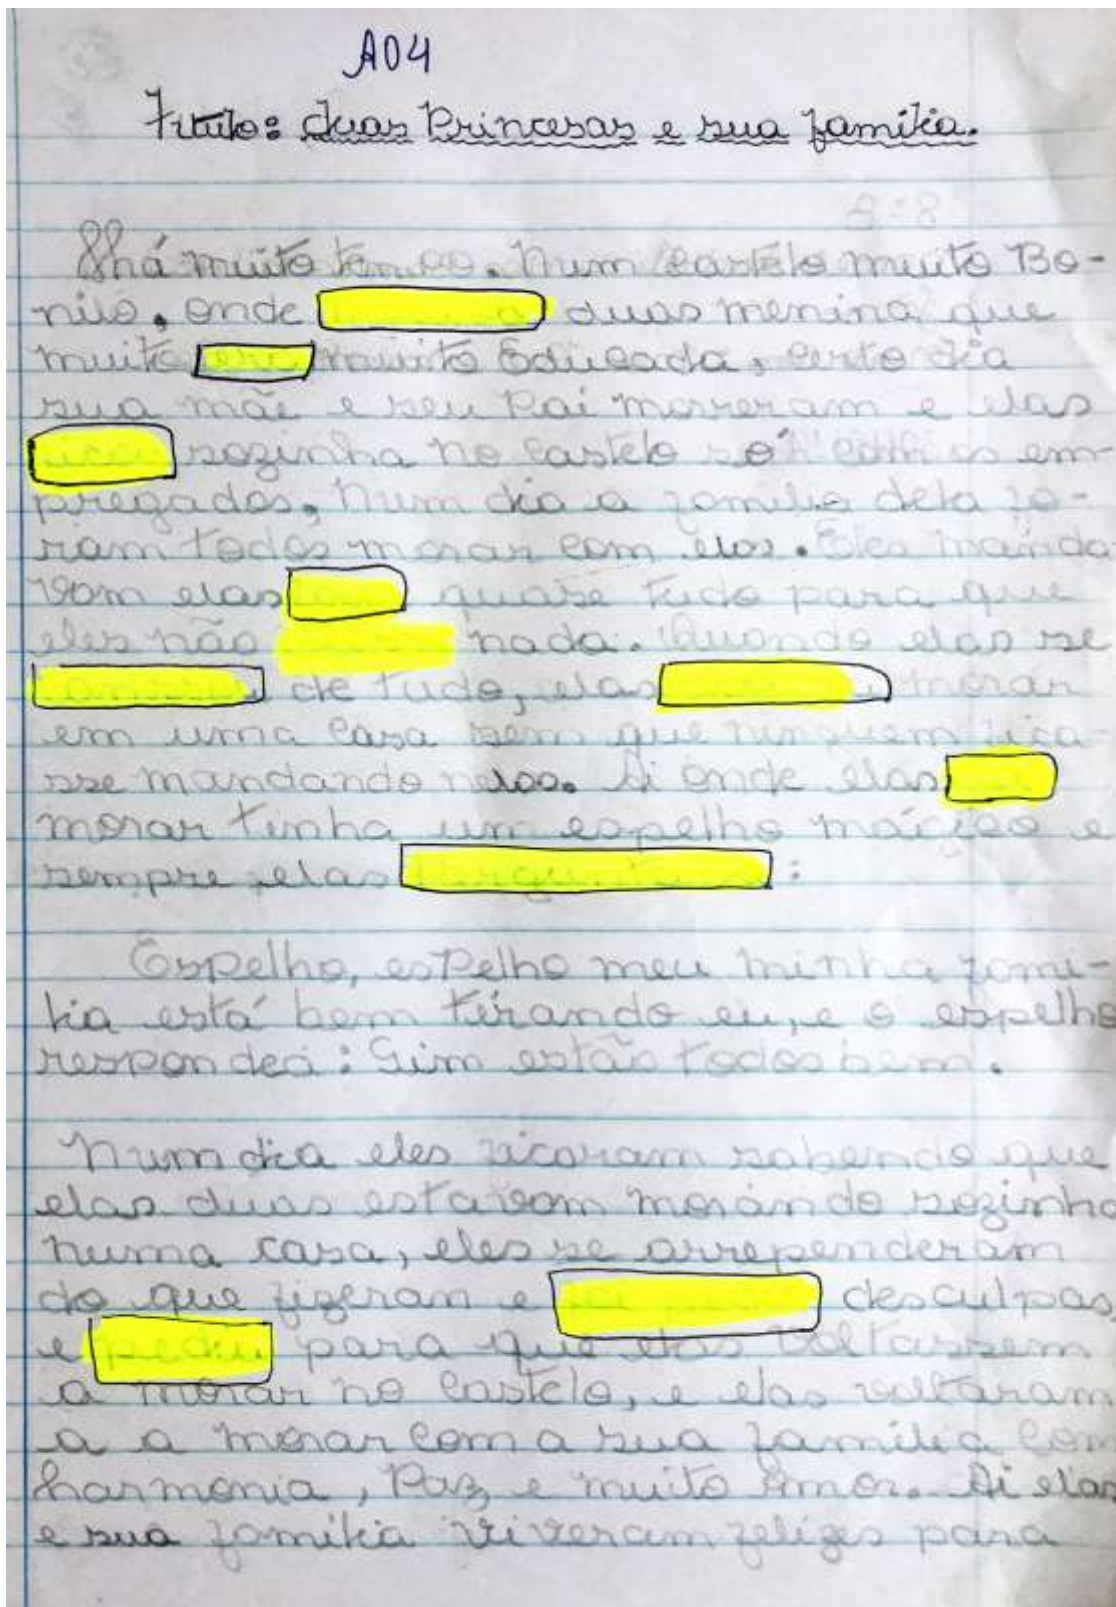 A04
Título: duas Princesas e sua família.
há muito tempo. Num castelo muito Bo-
nito, onde duas menina que
muito muito Educada, certo dia
sua mãe e seu Pai morreram e elas
sozinha no castelo só com os em-
pregados, Num dia a familia dela fo-
ram todos morar com elas. Eles manda
vam elas quase tudo para que
eles não nada. Quando elas se
de tudo, elas morar
em uma casa sem que ninguem fica
sse mandando nelas. Ai onde elas
morar tinha um espelho e
sempre elas :
Espelho, esPelho meu minha fami-
lia está bem tirando eu, e o espelho
respondea: Sim estão todos bem.
Num dia eles ficaram sabendo que
elas duas estavam morando sozinha
numa casa, eles se arrependeram
do que fizeram e desculpas,
e pediu para que elas voltassem
a morar no castelo, e elas voltaram
a a morar com a sua família com
harmonia, Paz e muito Amor. Ai elas
e sua família viveram felizes para